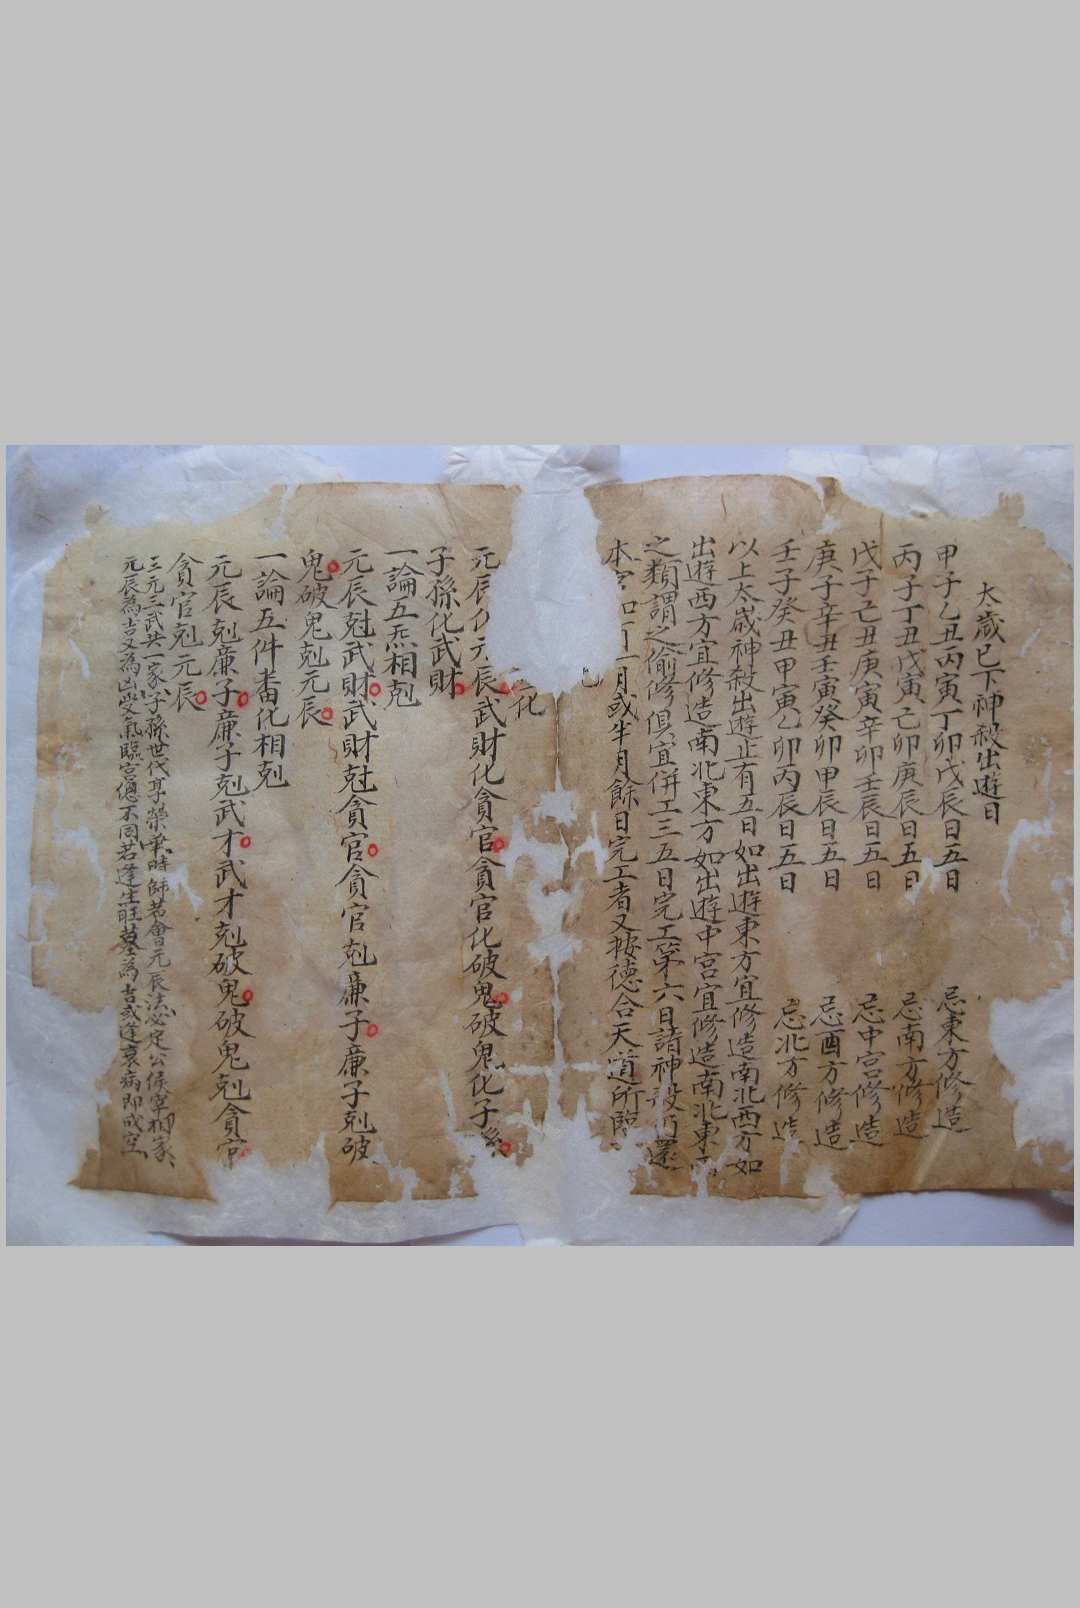 太歲已下神殺出遊日
甲子乙丑丙寅丁卯戊辰日五日 忌東方修造
丙子丁丑戊寅己卯庚辰日五日 忌南方修造
戊子己丑庚寅辛卯壬辰日五日 忌中宮修造
庚子辛丑壬寅癸卯甲辰日五日 忌酉方修造
壬子癸丑甲寅乙卯丙辰日五日 忌北方修造
以上太歲神殺出遊止有五日如出遊東方宜修造南北西方如
出遊西方宜修造南北東方如出遊中宮宜修造南北東
之類謂之偷修俱宜併工三五日完工第六日諸神殺仍還
本宮如 一月或半月餘日完工者又按德合天道所臨
化
元辰化元辰武財化貪官貪官化破鬼破鬼化子
子孫化武財
一論五炁相剋
元辰尅武財武財尅貪官貪官剋廉子廉子剋破
鬼破鬼剋元辰
一論五件畨化相剋
元辰剋廉子廉子剋武才武才剋破鬼破鬼剋貪官
貪官剋元辰
三元三武共一家子孫世代享榮華時師若會元辰法必定公侯宰相家
元辰為吉又為凶受氣臨宮總不同若逢生旺墓為吉或逢衰病即成空